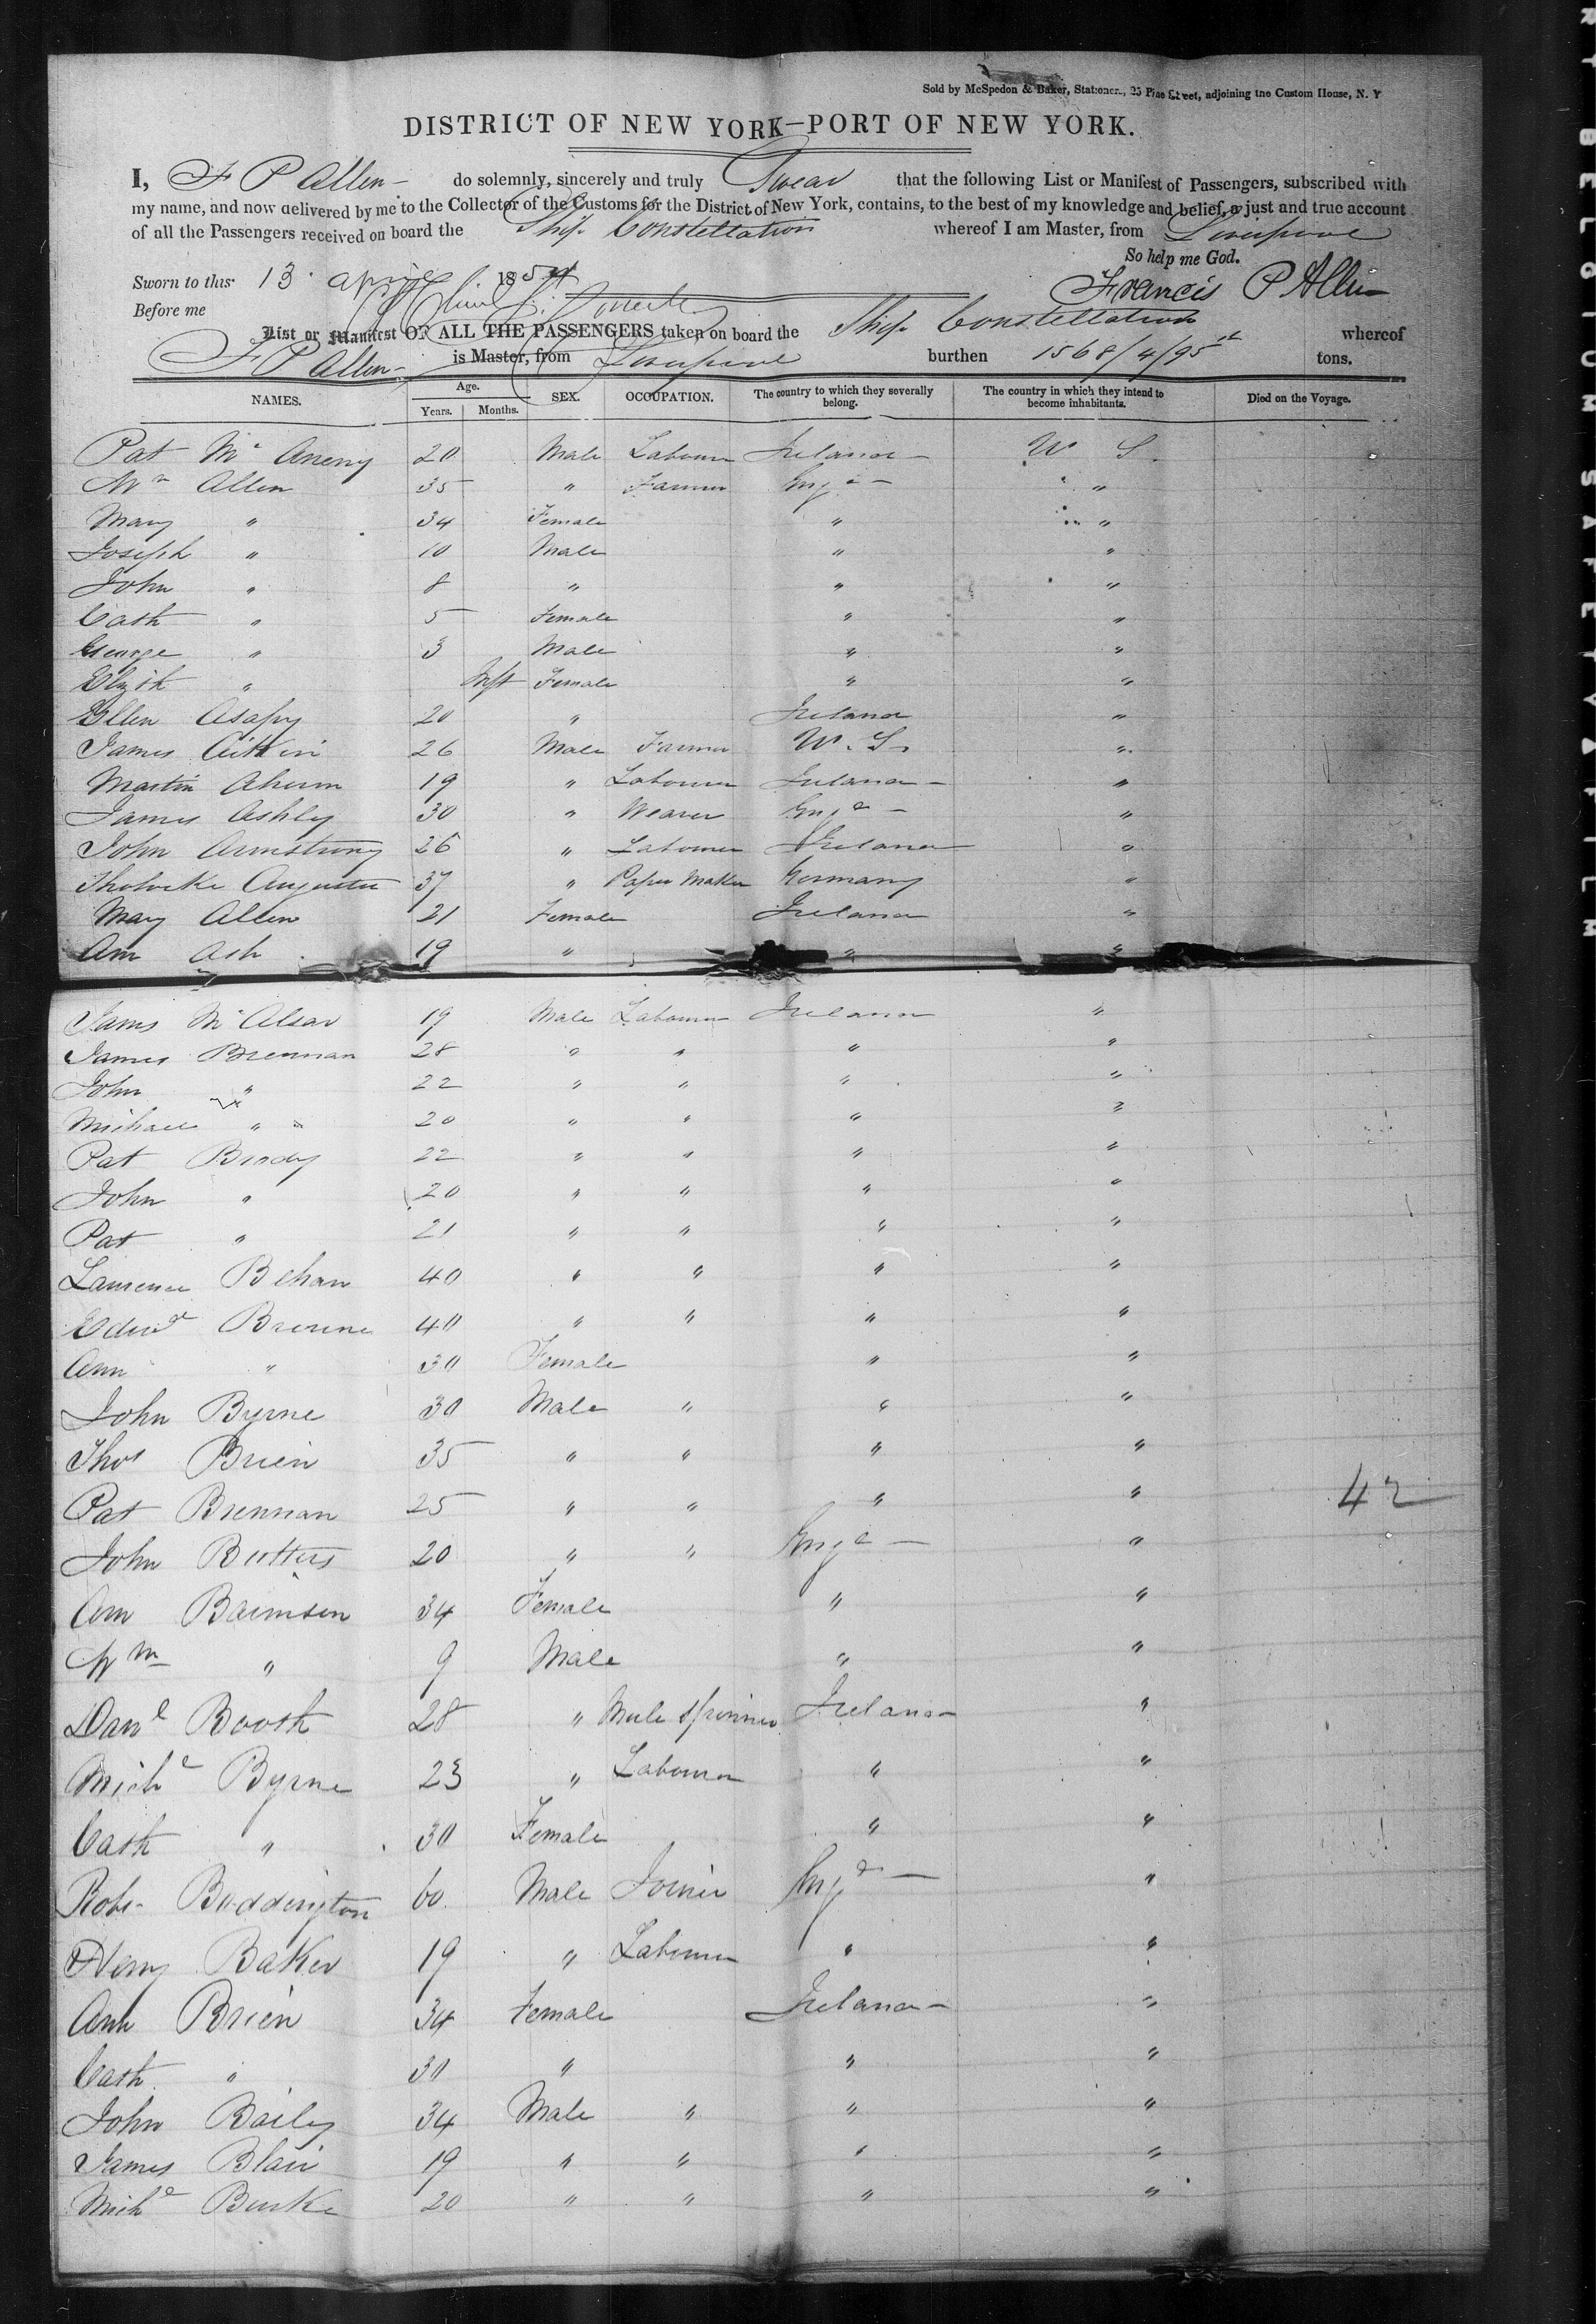 Sold by McSpedon & Baker, Stationers, 25 Pine Street, adjoining the Custom House, N. Y
DISTRICT OF NEW YORK—PORT OF NEW YORK.
I, F P Allen do solemnly, sincerely and truly Swear that the following List or Manifest of Passengers, subscribed with
my name, and now delivered by me to the Collector of the Customs for the District of New York, contains, to the best of my knowledge and belief, a just and true account
of all the Passengers received on board the Ship Constellation whereof I am Master, from Liverpool
So help me God.
Sworn to this 13 April 1854 Francis P Allen
Before me
List or Manifest OF ALL THE PASSENGERS taken on board the Ship Constellation whereof
F P Allen is Master, from Liverpool burthen 1568/4/95 tons.
NAMES. Age. Years. Months. SEX. OCCUPATION. The country to which they severally belong. The country in which they intend to become inhabitants. Died on the Voyage.
Pat Mc 20 Male Labourer Ireland U S.
Wm Allen 35 " Farmer Engd "
Mary " 34 Female " "
Joseph " 10 Male " "
John " 8 " " "
Cath " 5 Female " "
George " 3 Male " "
Elizth " Inft Female " "
Ellen 20 " Ireland "
James Aitkin 26 Male Farmer U. S. "
Martin Ahern 19 " Labourer Ireland "
James Ashley 30 " Weaver Engd "
John Armstrong 26 " Labourer Ireland "
Augustus 37 " Paper Maker Germany "
Mary Allen 21 Female Ireland "
Ann Ash 19 " " "
James Mc 19 Male Labourer Ireland "
James Brennan 28 " " " "
John " 22 " " " "
Michael " 20 " " " "
Pat Brady 22 " " " "
John " 20 " " " "
Pat " 21 " " " "
Laurence Behan 40 " " " "
Edwd Browne 40 " " " "
Ann " 30 Female " "
John Byrne 30 Male " " "
Thos Brien 35 " " " "
Pat Brennan 25 " " " " 42
John Butters 20 " " Engd "
Ann 34 Female " "
Wm " 9 Male " "
Danl Booth 28 " Mule Spinner Ireland "
Michl Byrne 23 " Labourer " "
Cath " 30 Female " "
Robt Boddington 60 Male Joiner Engd "
Henry Baker 19 " Labourer " "
Ann Brien 34 Female Ireland "
Cath " 30 " " "
John Baily 34 Male " " "
James Blair 19 " " " "
Michl Burke 20 " " " "